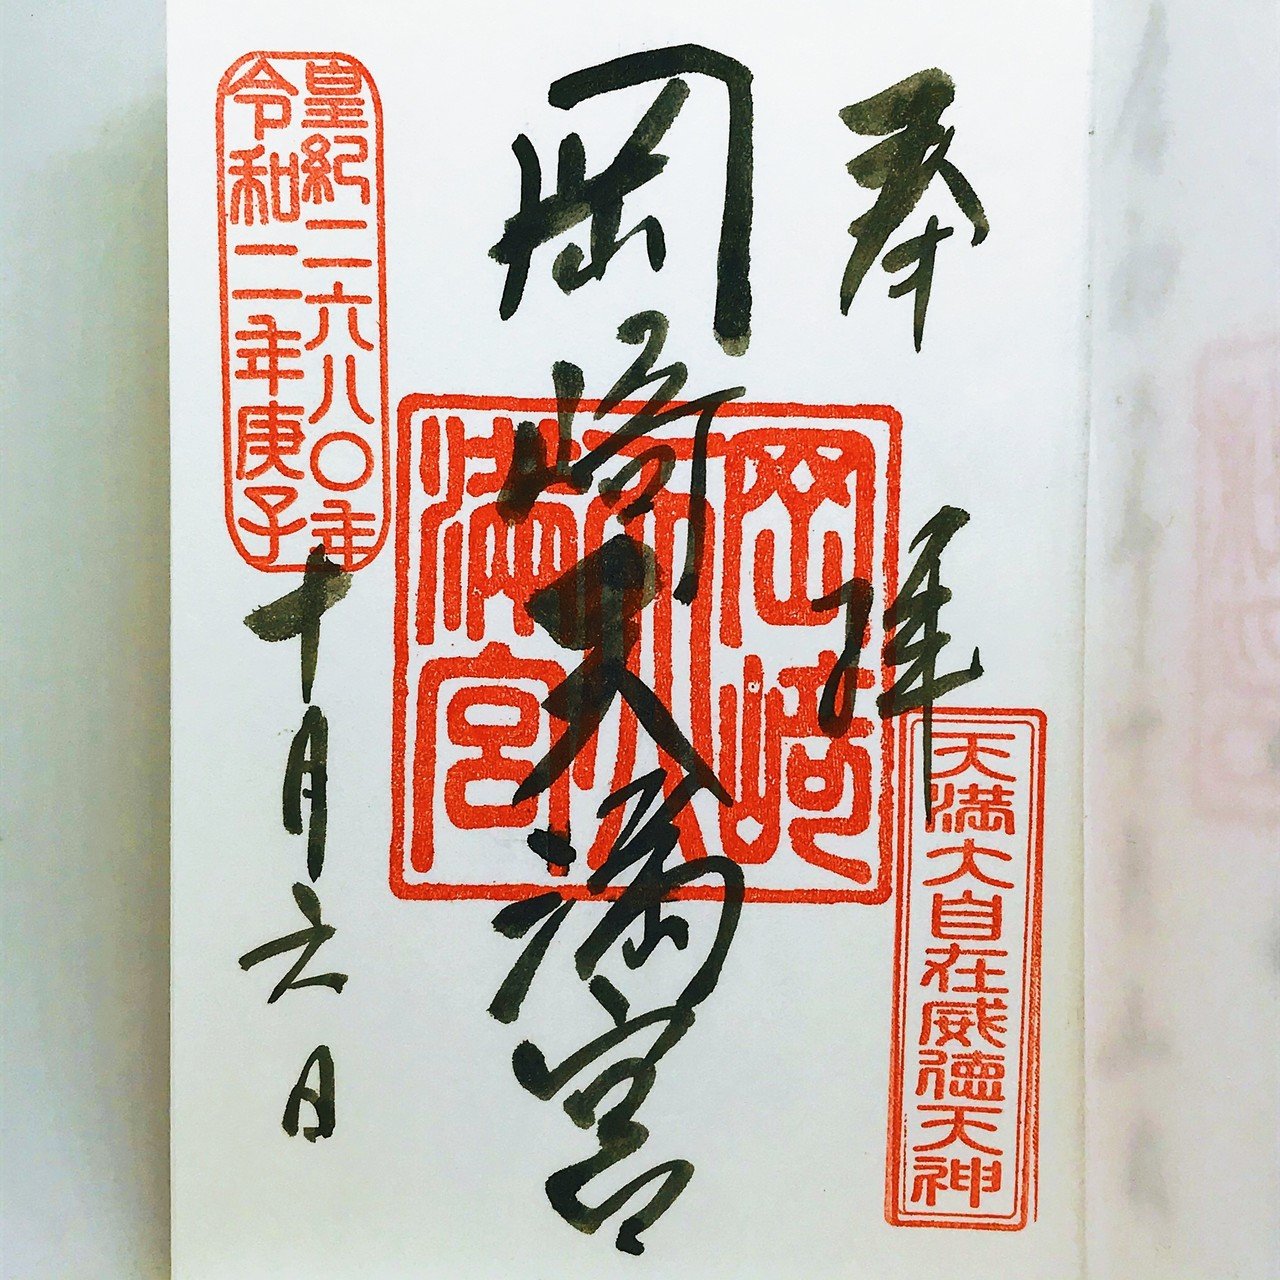 奉拝
天満大自在威徳天神
岡崎天満宮
岡崎天満宮
皇紀二六八〇年
令和二年庚子
十月六日